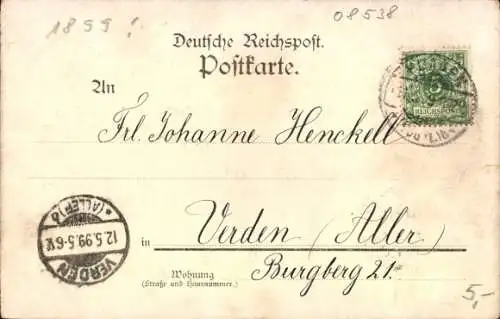 1899!
08538
Deutsche Reichspost.
Postkarte.
An
Frl. Johanne Henckell
REICHSPOST
in Verden (Aller)
Burgberg 21.
Wohnung
(Straße und Hausnummer.)
VERDEN
12.5.99.5-6N.
*(ALLER)a
5,-